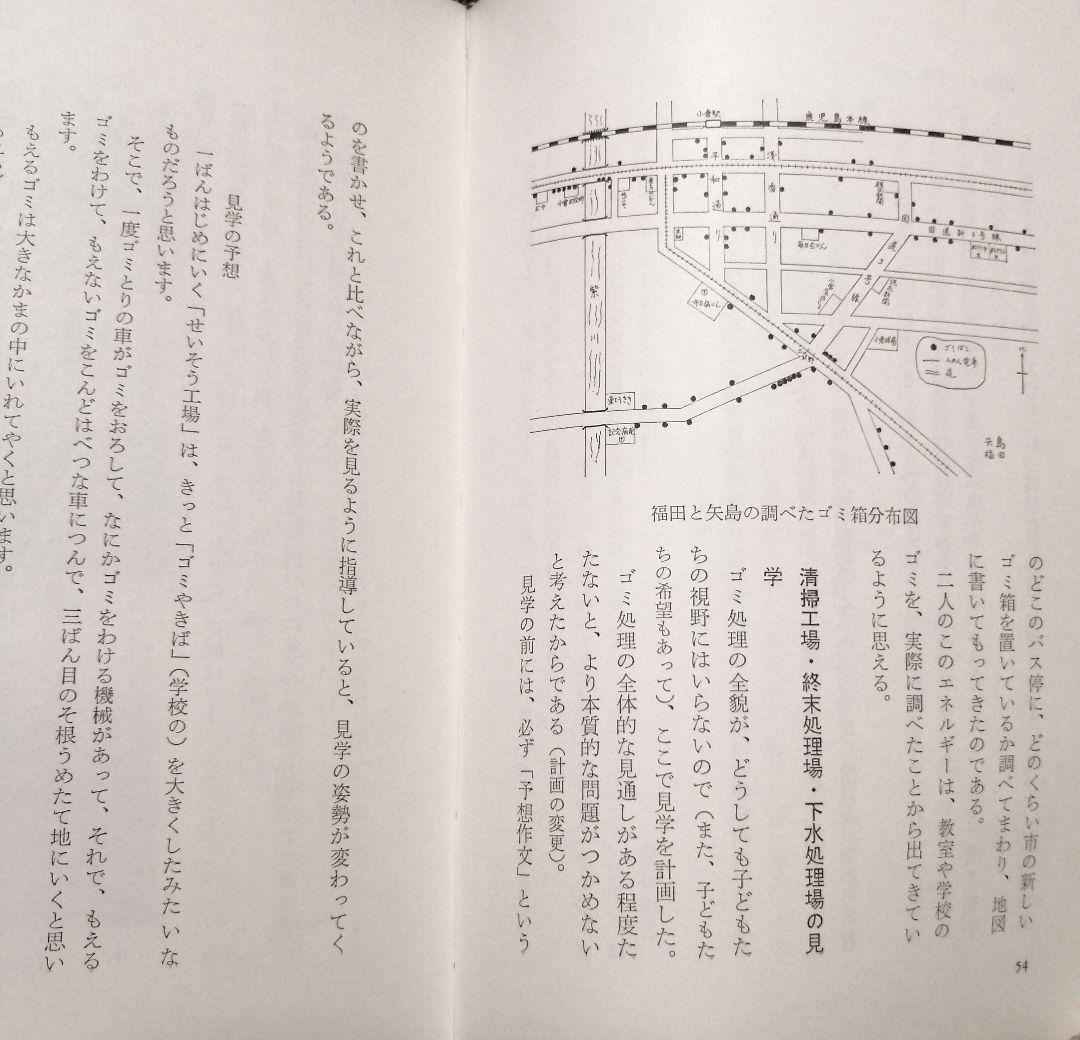 小倉駅
鹿児島本線
平和通り
清香通り
国道新3号線
国道3号線
紫
川
小倉球場
ゴミばこ
ろめん電車
道
北
矢島
福田
福田と矢島の調べたゴミ箱分布図
のどこのバス停に、どのくらい市の新しい
ゴミ箱を置いているか調べてまわり、地図
に書いてもってきたのである。
二人のこのエネルギーは、教室や学校の
ゴミを、実際に調べたことから出てきてい
るように思える。
清掃工場・終末処理場・下水処理場の見
学
ゴミ処理の全貌が、どうしても子どもた
ちの視野にはいらないので（また、子どもた
ちの希望もあって）、ここで見学を計画した。
ゴミ処理の全体的な見通しがある程度た
たないと、より本質的な問題がつかめない
と考えたからである（計画の変更）。
見学の前には、必ず「予想作文」という
54
のを書かせ、これと比べながら、実際を見るように指導していると、見学の姿勢が変わってく
るようである。
見学の予想
一ばんはじめにいく「せいそう工場」は、きっと「ゴミやきば」（学校の）を大きくしたみたいな
ものだろうと思います。
そこで、一度ゴミとりの車がゴミをおろして、なにかゴミをわける機械があって、それで、もえる
ゴミをわけて、もえないゴミをこんどはべつな車につんで、三ばん目のそ根うめたて地にいくと思い
ます。
もえるゴミは大きなかまの中にいれてやくと思います。